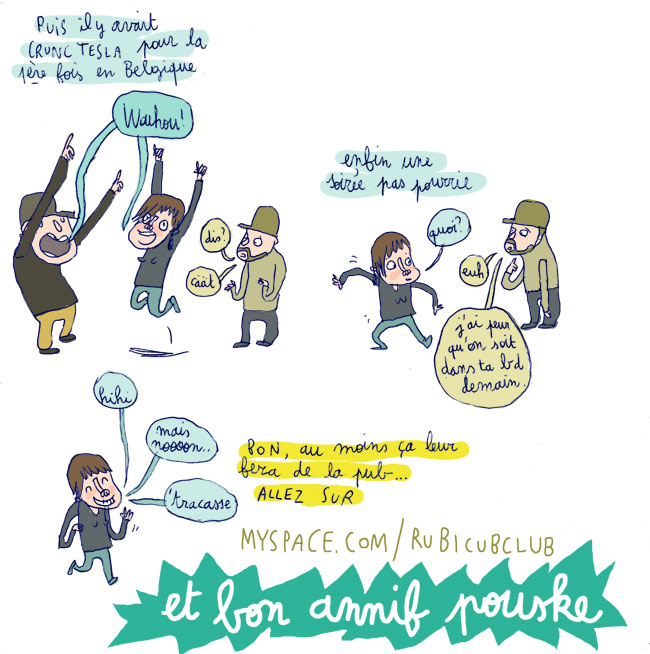 Puis il y avait
CRUNC TESLA pour la
1ère fois en Belgique
Wouhou!
dis?
Cäät
enfin une
soirée pas pourrie
quoi?
euh
j'ai peur
qu'on soit
dans ta bd
demain.
hihi
mais
noooon..
'tracasse
BON, au moins ça leur
fera de la pub...
ALLEZ SUR
MYSPACE.COM/RUBICUBCLUB
et bon annif pouske